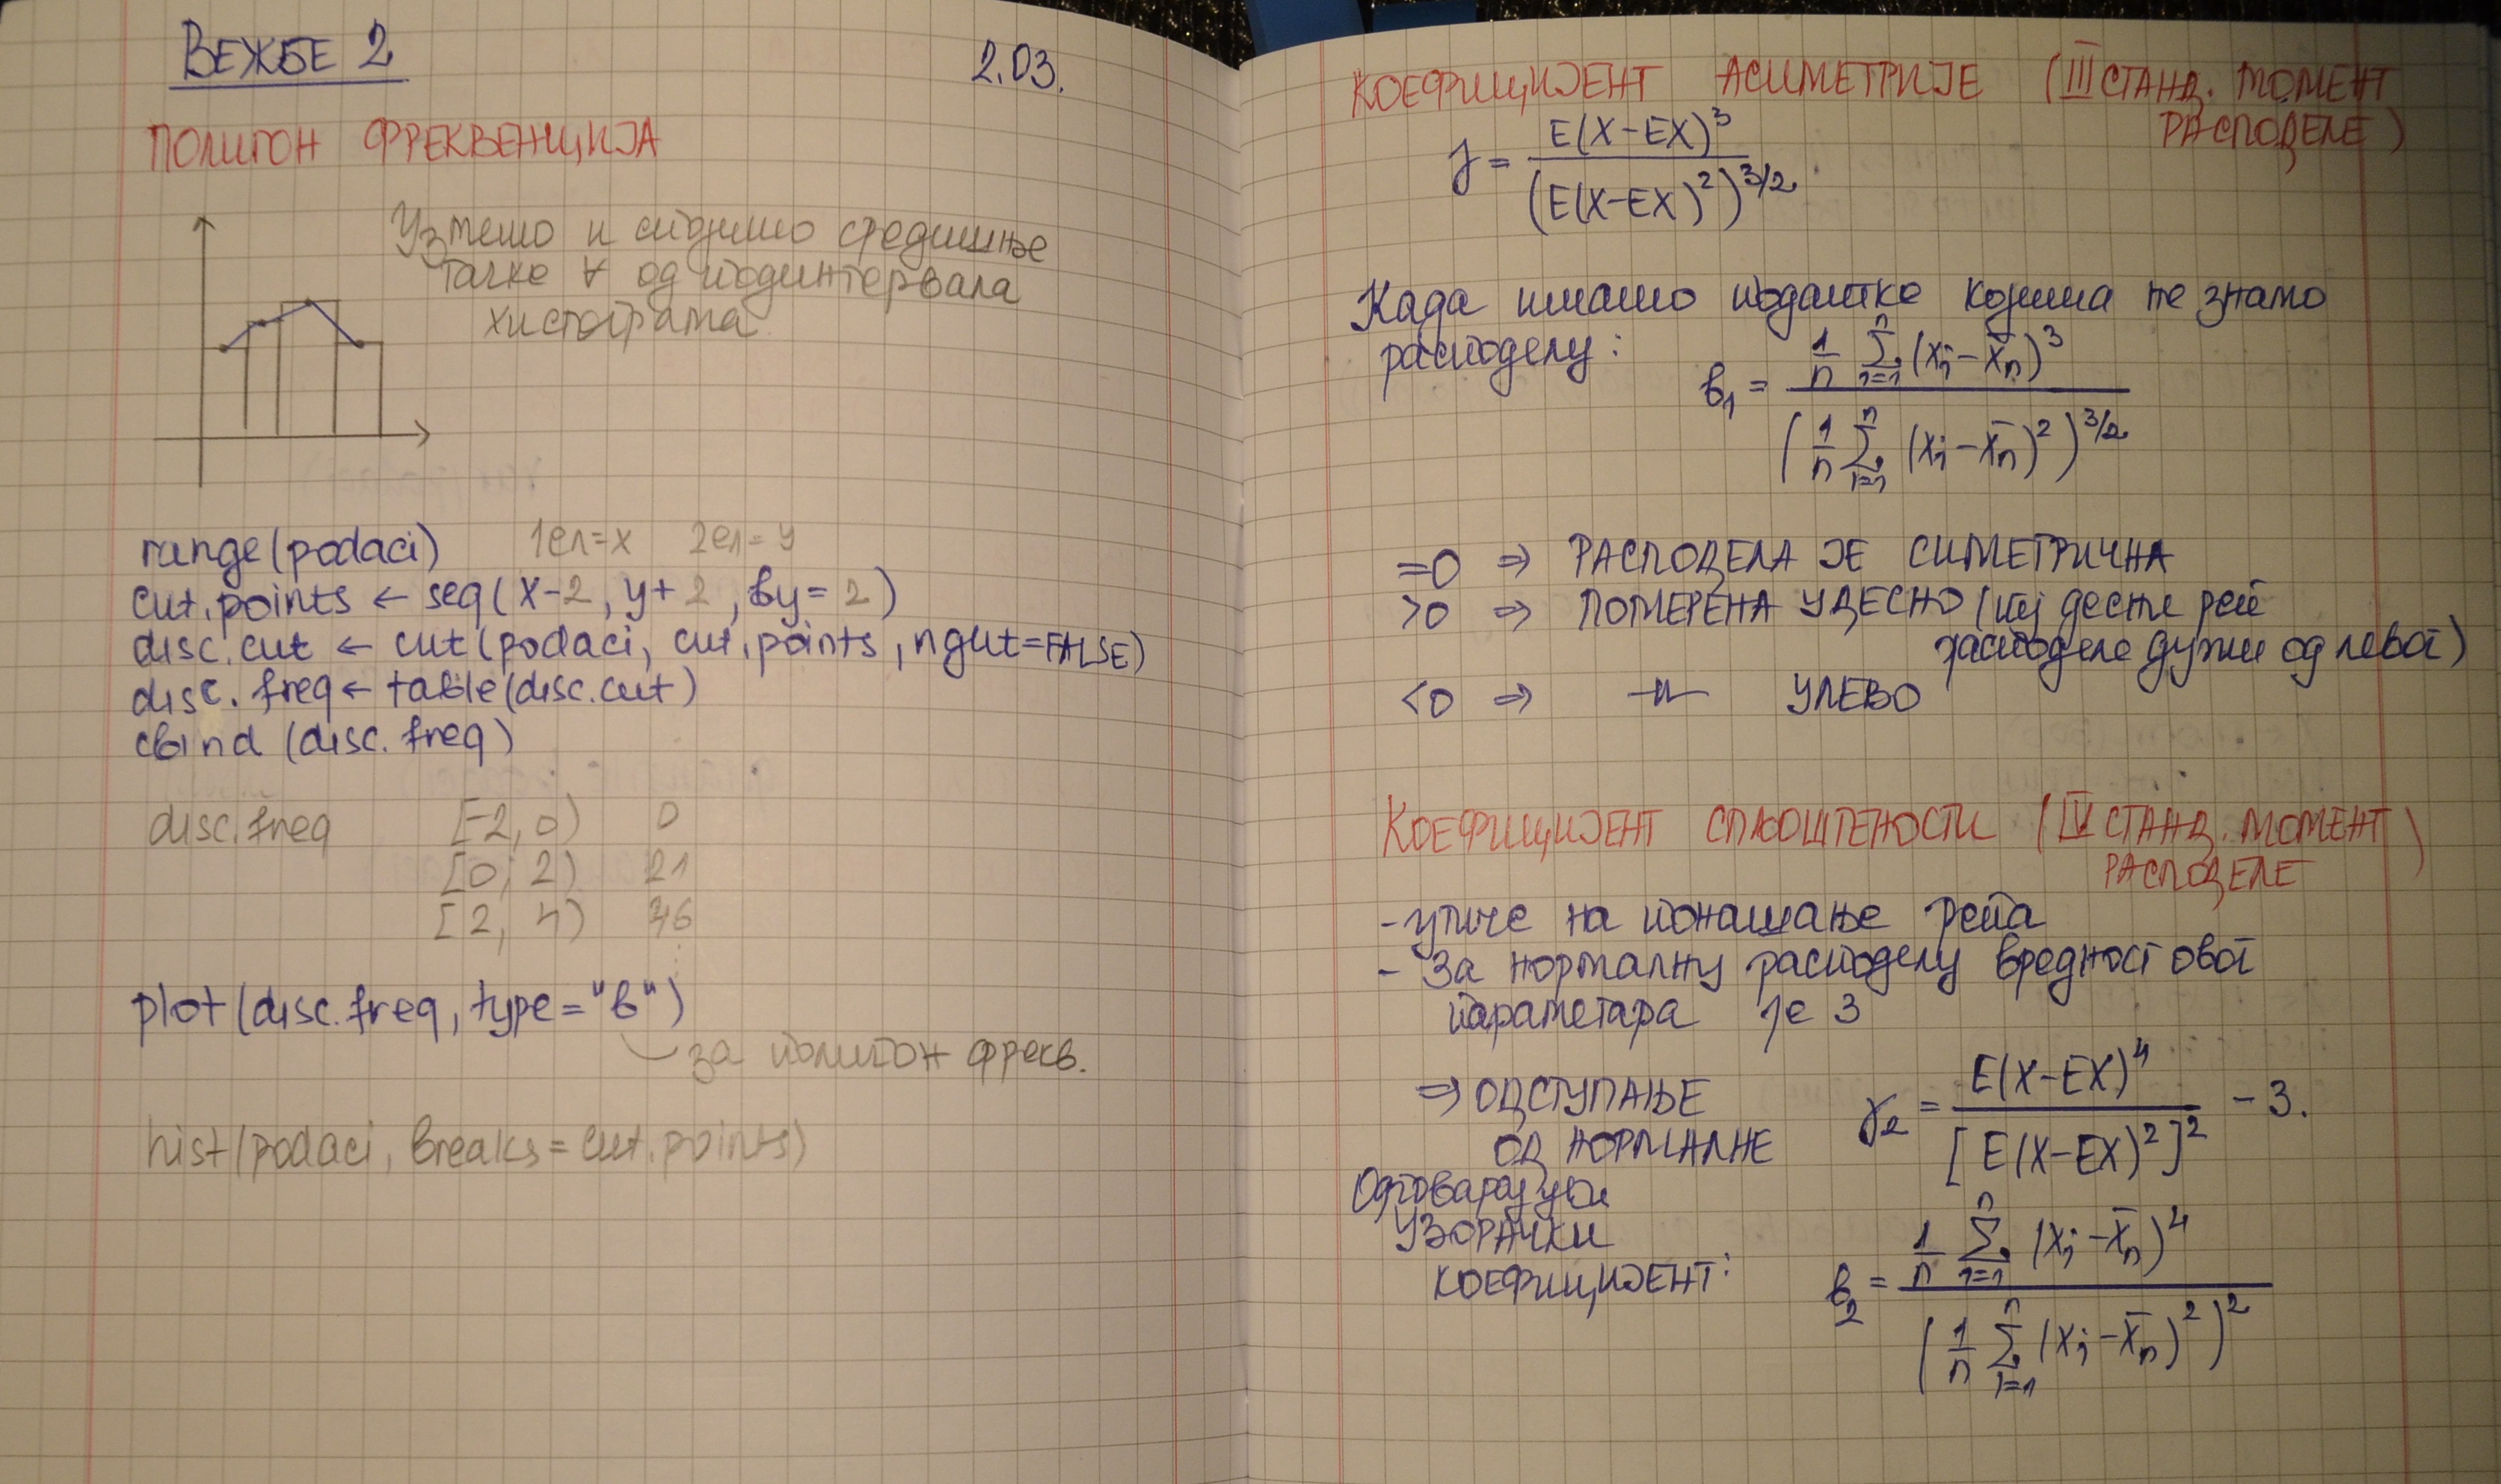 ВЕЖБЕ 2
2.03.
ПОЛИГОН ФРЕКВЕНЦИЈА
Узмемо и спојимо средишње
тачке ∀ од подинтервала
хистограма
range(podaci) 1ел=x 2ел=y
cut.points ← seq(x-2, y+2, by=2)
disc.cut ← cut(podaci, cut.points, right=FALSE)
disc.freq ← table(disc.cut)
cbind(disc.freq)
disc.freq [-2,0) 0
[0,2) 21
[2,4)
plot(disc.freq, type="b")
за полигон фрекв.
hist(podaci, breaks=cut.points)
КОЕФИЦИЈЕНТ АСИМЕТРИЈЕ (III СТАНД. МОМЕНТ
РАСПОДЕЛЕ)
γ = E(X-EX)³ / (E(X-EX)²)^3/2
Када имамо податке којима не знамо
расподелу:
b₁ = 1/n Σ_{i=1}^n (xᵢ - x̄ₙ)³ / (1/n Σ_{i=1}^n (xᵢ - x̄ₙ)²)^3/2
=0 ⇒ РАСПОДЕЛА ЈЕ СИМЕТРИЧНА
>0 ⇒ ПОМЕРЕНА УДЕСНО (тј десни реп
расподеле дужи од левог)
<0 ⇒ —||— УЛЕВО
КОЕФИЦИЈЕНТ СПЉОШТЕНОСТИ (IV СТАНД. МОМЕНТ
РАСПОДЕЛЕ)
- утиче на понашање репа
- За нормалну расподелу вредност овог
параметара је 3
⇒ ОДСТУПАЊЕ
ОД НОРМАЛНЕ
γ₂ = E(X-EX)⁴ / [E(X-EX)²]² - 3.
Одговарајући
УЗОРАЧКИ
КОЕФИЦИЈЕНТ:
b₂ = 1/n Σ_{i=1}^n (xᵢ - x̄ₙ)⁴ / (1/n Σ_{i=1}^n (xᵢ - x̄ₙ)²)²